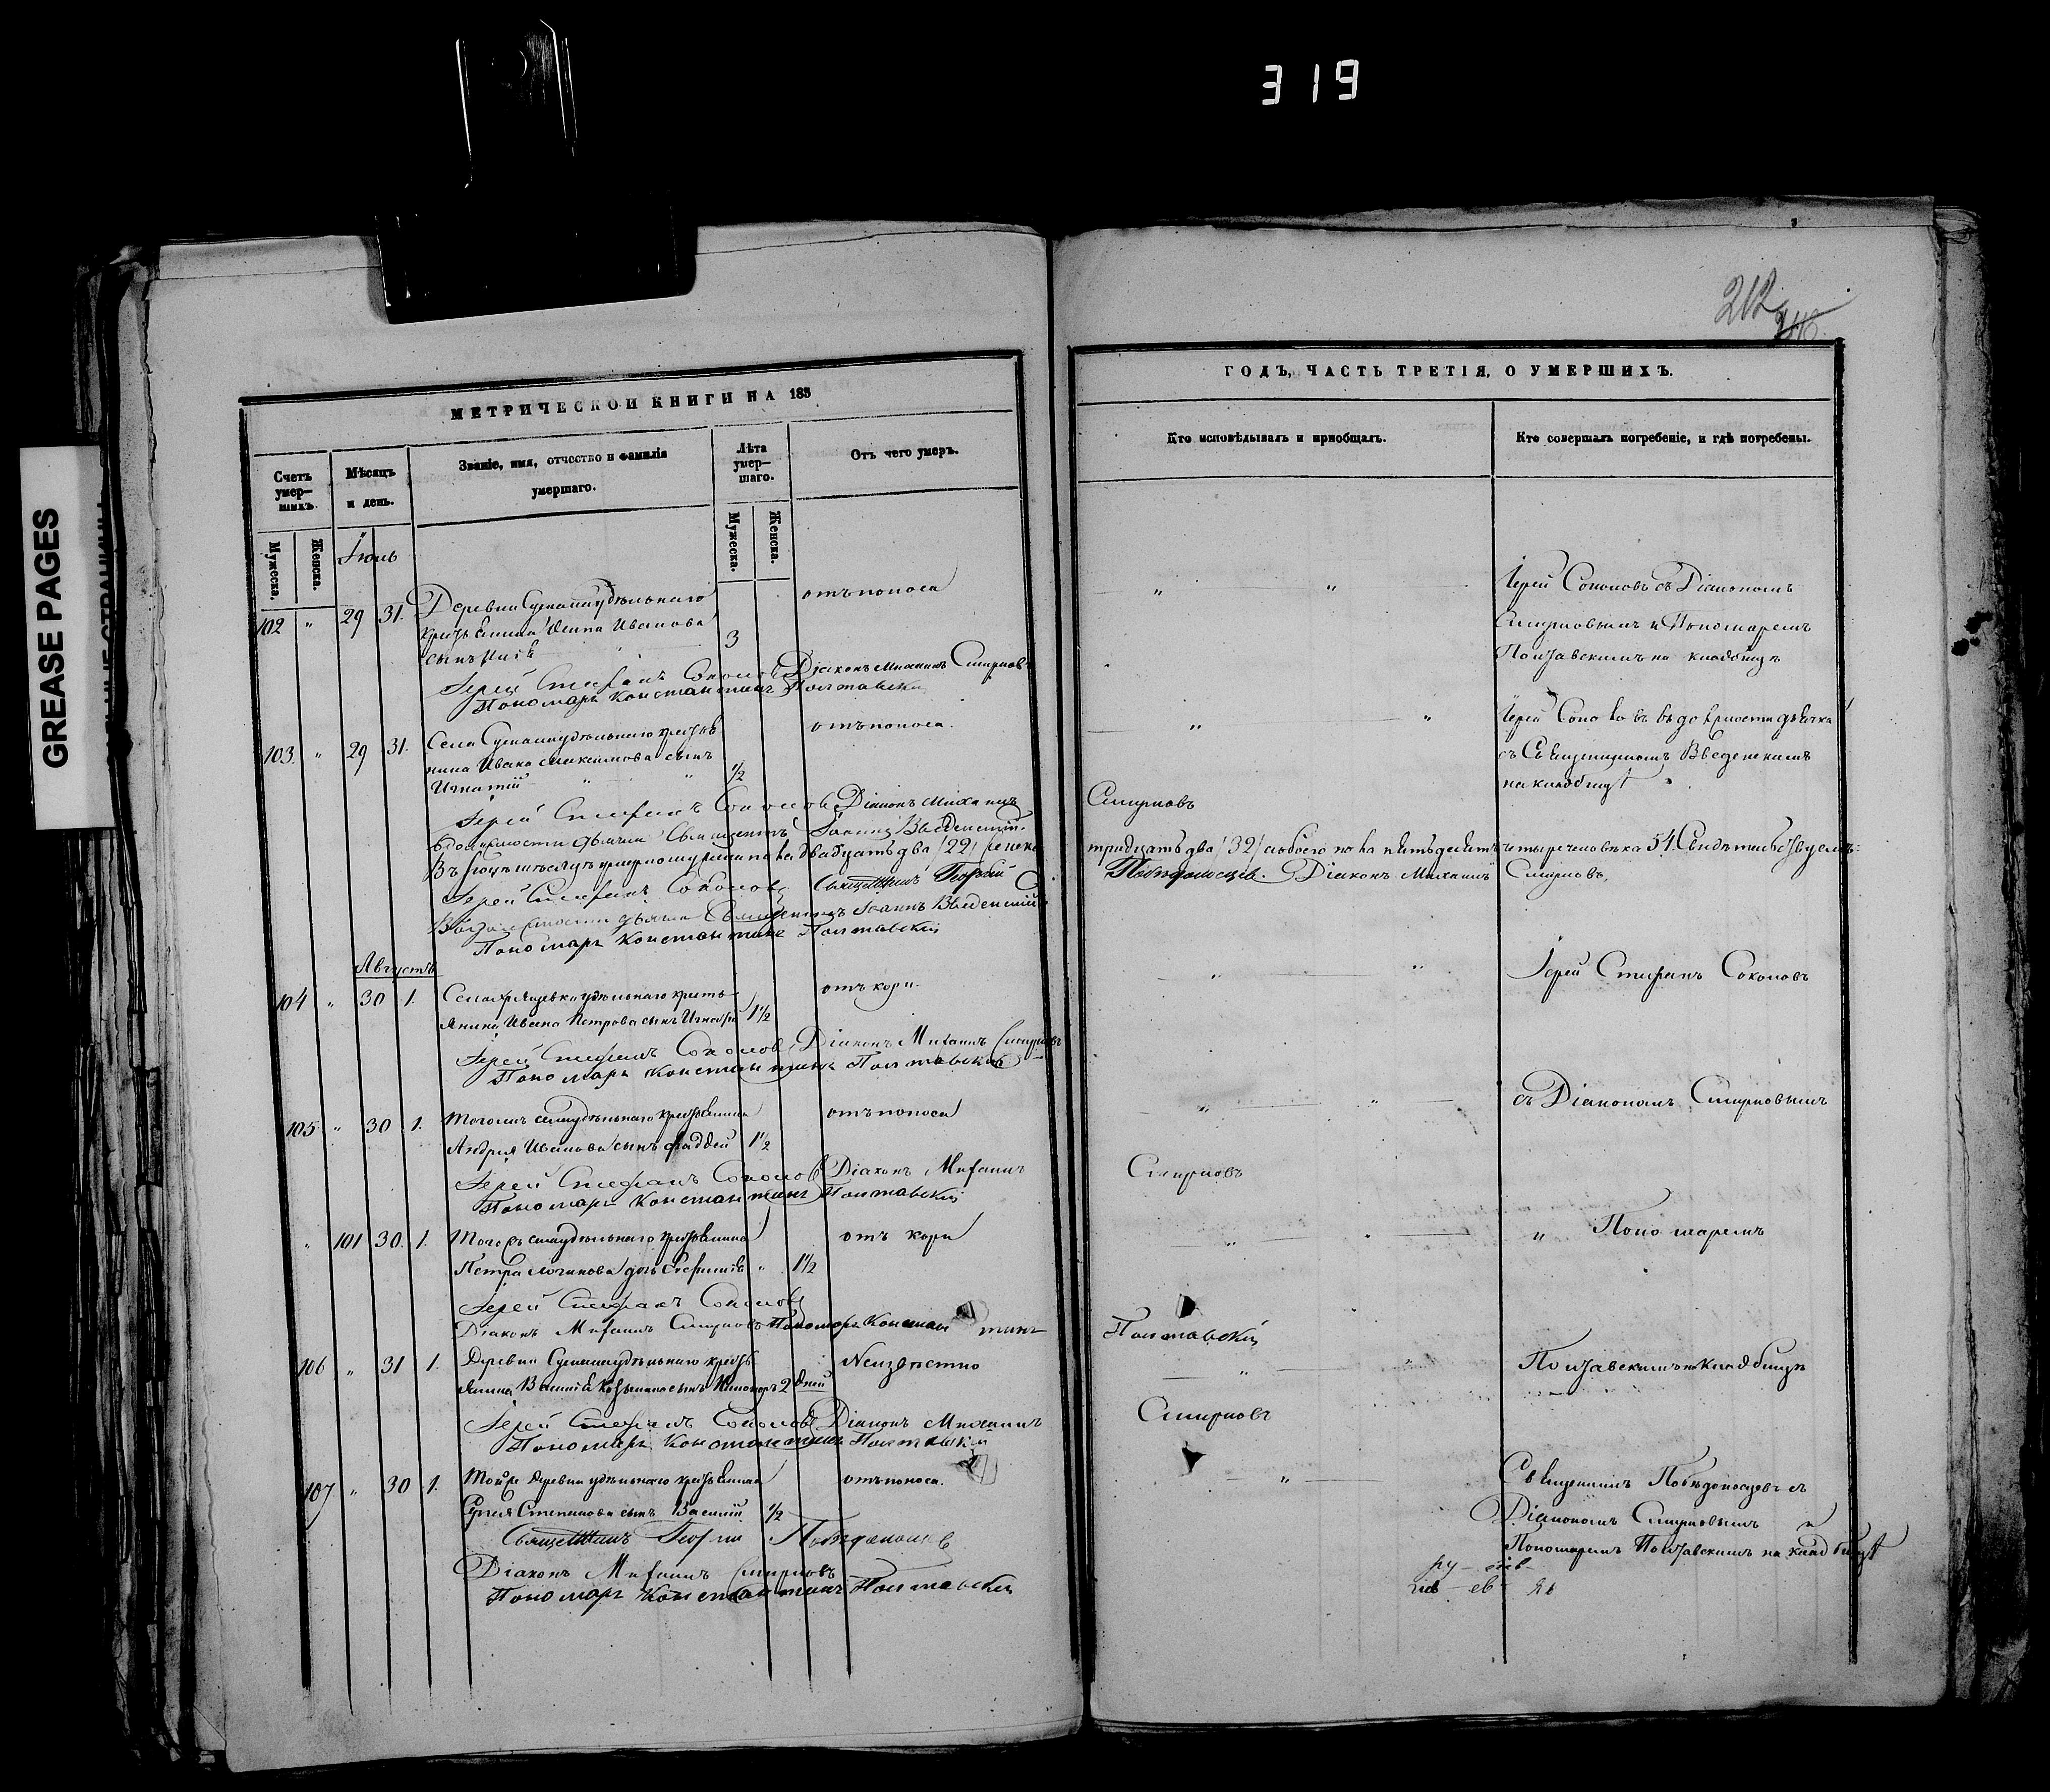 319
GREASE PAGES
212
МЕТРИЧЕСКОЙ КНИГИ НА 185
Счетъ умер-шихъ.
Мѣсяцъ и день.
Званіе, имя, отчество и фамилія умершаго.
Лѣта умер-шаго.
Отъ чего умеръ.
Мужеска.
Женска.
Мужеска.
Женска.
Іюль
102 " 29 31. Деревни удѣльнаго отъ поноса
Иванова 3
сынъ
Іерей Стефанъ Соколовъ Діаконъ Михаилъ Смирновъ
Пономарь Константинъ Полтавскій
103. " 29 31. Села удѣльнаго отъ поноса.
нина Ивана Максимова сынъ
Игнатій 1/2
Іерей Стефанъ Соколовъ Діаконъ Михаилъ
въ должности дьячка Священникъ Іоаннъ Введенскій.
Въ Іюлѣ мѣсяцѣ умерло мужеска пола двадцать два /22/ женска
Іерей Стефанъ Соколовъ Священникъ Георгій
въ должности дьячка Священникъ Іоаннъ Введенскій
Пономарь Константинъ Полтавскій
Августъ
104 " 30 1. Села удѣльнаго кресть- отъ кори.
янина Ивана Петрова сынъ 1 1/2
Іерей Стефанъ Соколовъ Діаконъ Михаилъ Смирновъ
Пономарь Константинъ Полтавскій
105 " 30 1. Тогожъ села удѣльнаго крестьянина отъ поноса
Андрея Иванова сынъ Фаддей 1 1/2
Іерей Стефанъ Соколовъ Діаконъ Михаилъ
Пономарь Константинъ Полтавскій
" 101 30. 1. Тогожъ села удѣльнаго крестьянина отъ кори
Петра дочь " 1 1/2
Іерей Стефанъ Соколовъ
Діаконъ Михаилъ Смирновъ Пономарь Константинъ
106 " 31 1. Деревни удѣльнаго кресть Неизвѣстно
янина сынъ 2 дней
Іерей Стефанъ Соколовъ Діаконъ Михаилъ
Пономарь Константинъ Полтавскій
107 " 30 1. Тойже деревни удѣльнаго крестьянина отъ поноса.
Степанова сынъ Василій 1/2
Священникъ Георгій Побѣдоносцевъ
Діаконъ Михаилъ Смирновъ
Пономарь Константинъ Полтавскій
ГОДЪ, ЧАСТЬ ТРЕТІЯ, О УМЕРШИХЪ.
Кто исповѣдывалъ и пріобщалъ.
Кто совершалъ погребеніе, и гдѣ погребены.
" " Іерей Соколовъ съ Діакономъ
Смирновымъ и Пономаремъ
Полтавскимъ на кладбищѣ
" " Іерей Соколовъ въ должности дьячка
съ Священникомъ Введенскимъ
на кладбищѣ
Смирновъ
тридцать два /32/ обоего пола пятьдесятъ четыре человѣка 54. Свидѣтельствуемъ:
Побѣдоносцевъ. Діаконъ Михаилъ Смирновъ,
" " Іерей Стефанъ Соколовъ
" " съ Діакономъ Смирновымъ
Смирновъ
" " " Пономаремъ
Полтавскій
" " Полтавскимъ на кладбищѣ
Смирновъ
" Священникъ Побѣдоносцевъ съ
Діакономъ Смирновымъ и
Пономаремъ Полтавскимъ на кладбищѣ